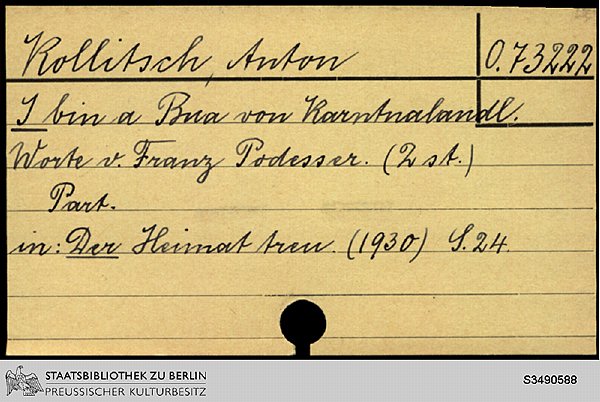 Kollitsch, Anton
O.73222
I bin a Bua von Karntnalandl.
Worte v. Franz Podesser. (2 st.)
Part.
in: Der Heimat treu. (1930) S. 24.
STAATSBIBLIOTHEK ZU BERLIN
PREUSSISCHER KULTURBESITZ
S3490588